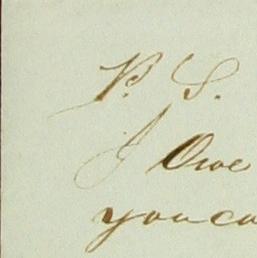 P. S.
I Owe
you